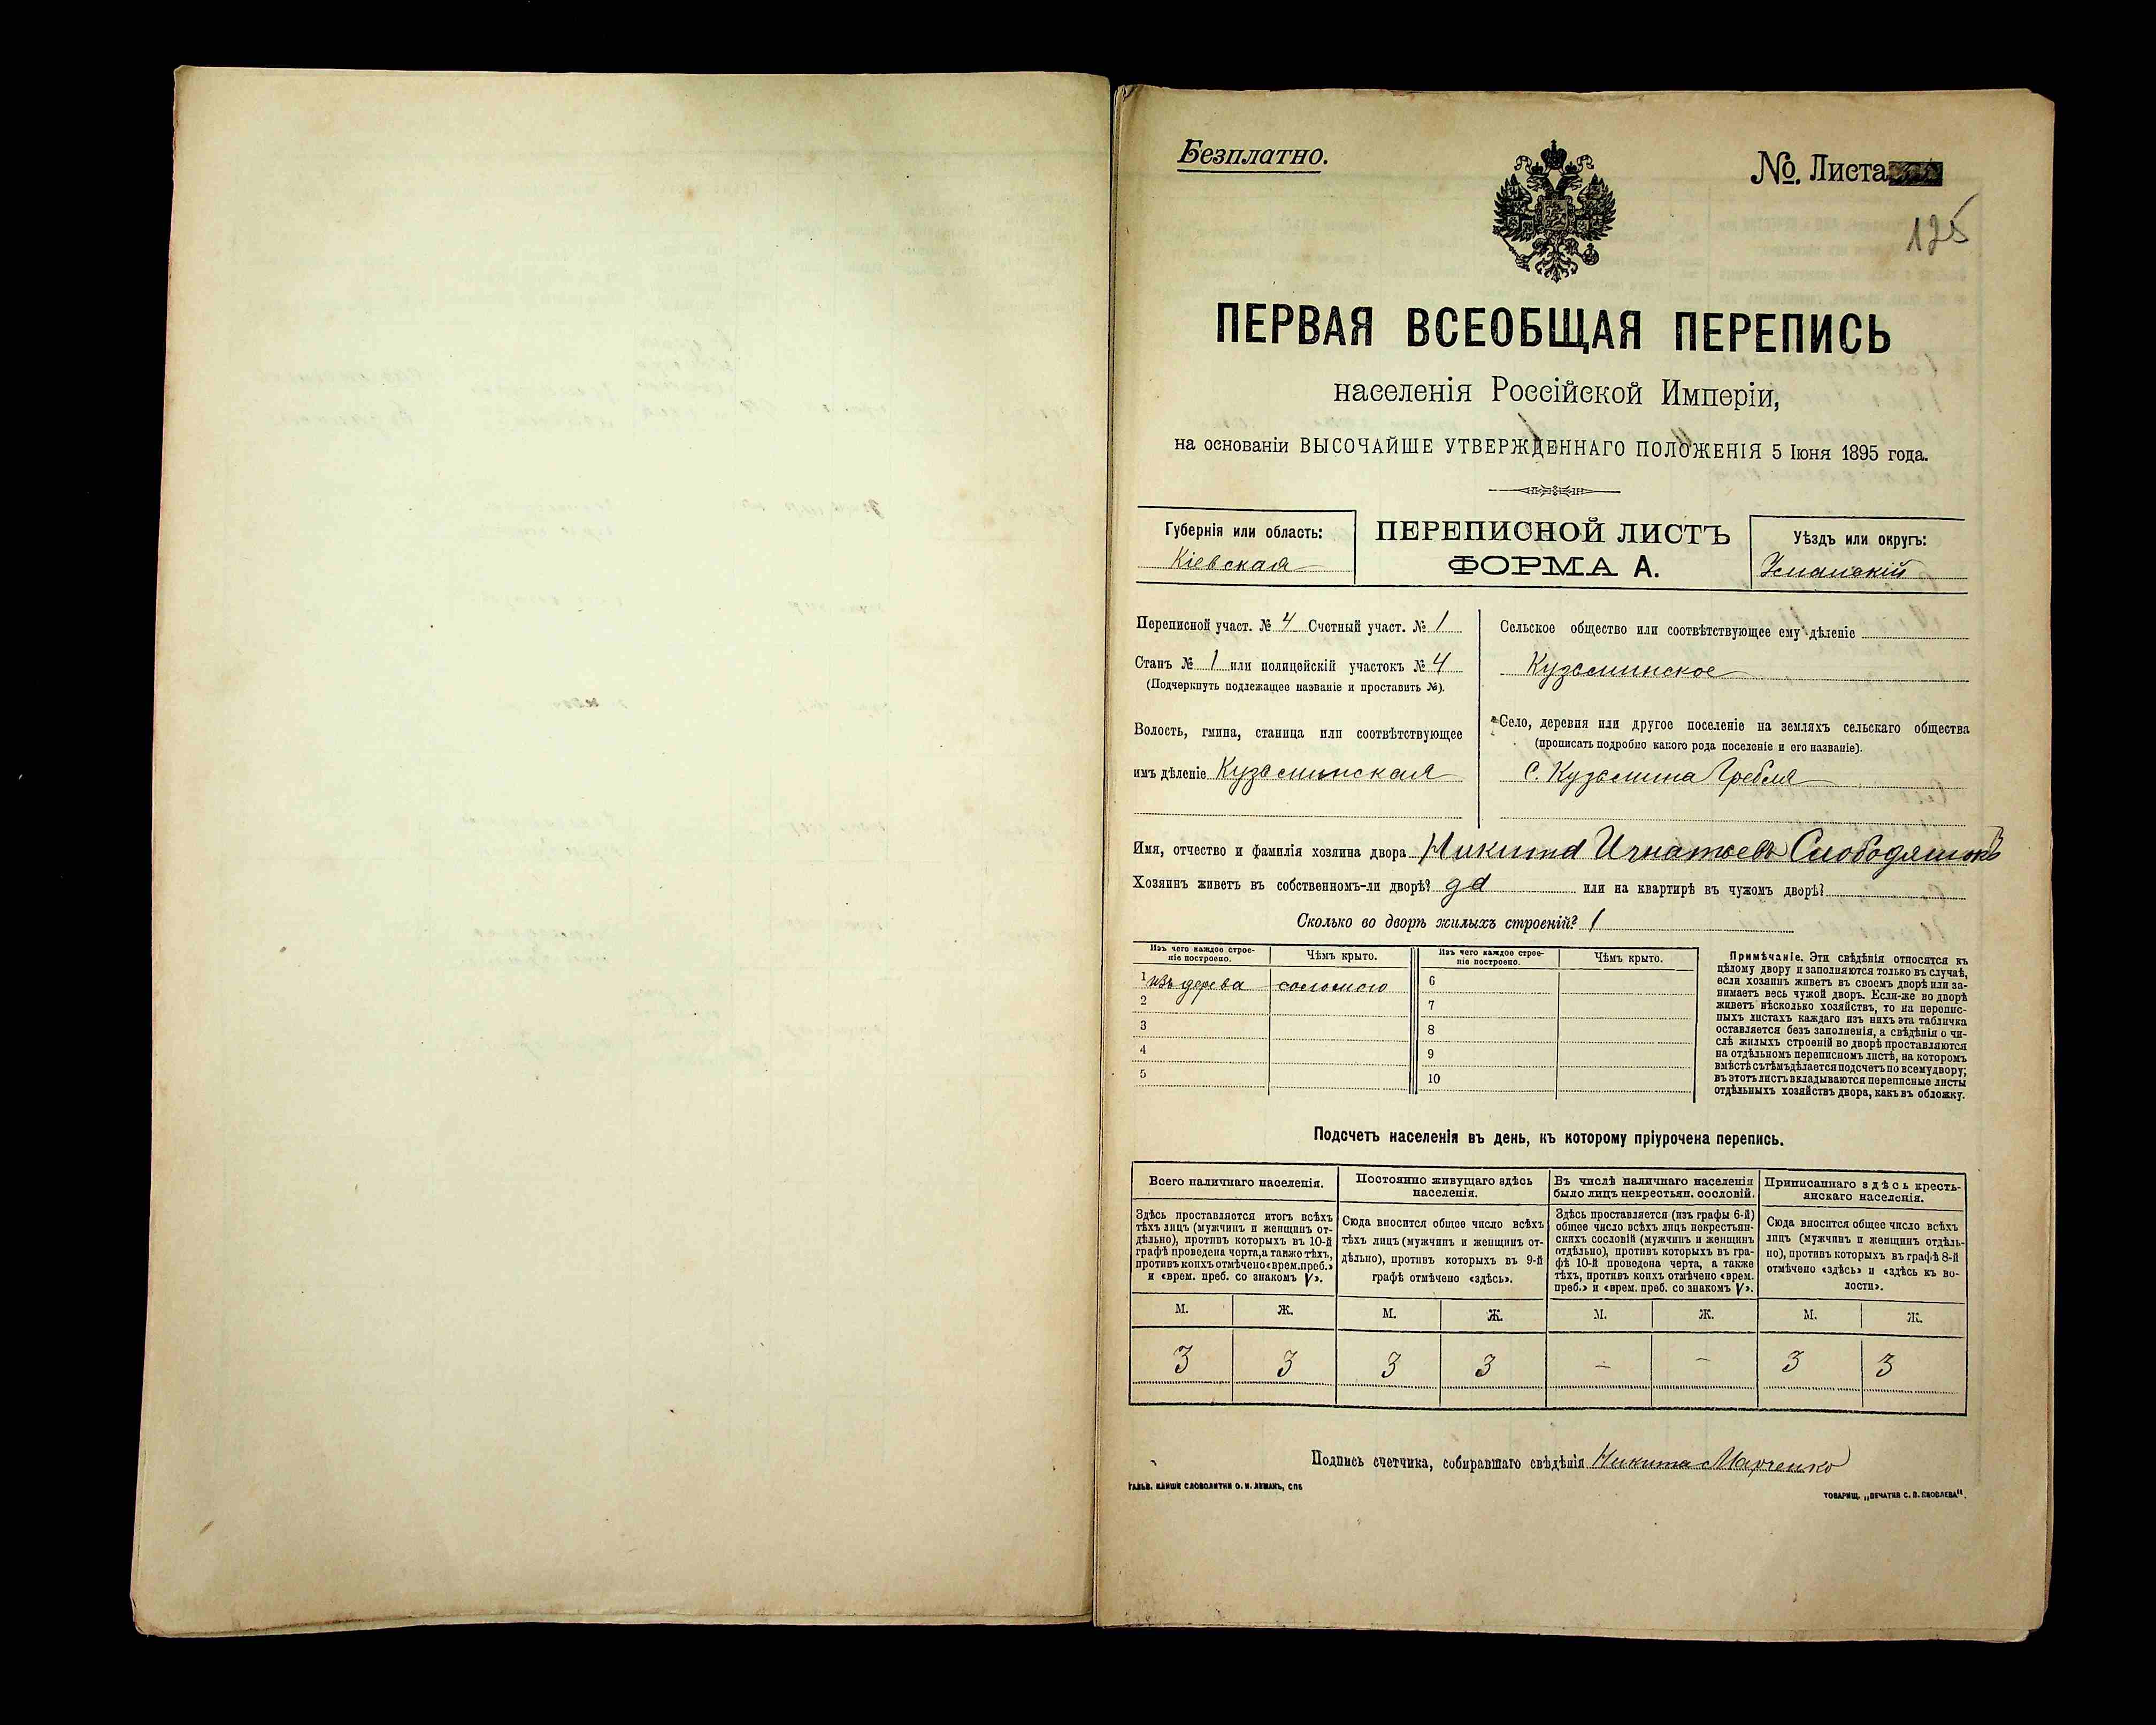 Безплатно.
№. Листа
125
ПЕРВАЯ ВСЕОБЩАЯ ПЕРЕПИСЬ
населенія Россійской Имперіи,
на основаніи ВЫСОЧАЙШЕ УТВЕРЖДЕННАГО ПОЛОЖЕНІЯ 5 Іюня 1895 года.
Губернія или область:
Кіевская
ПЕРЕПИСНОЙ ЛИСТЪ
ФОРМА А.
Уѣздъ или округъ:
Уманскій
Переписной участ. № 4 Счетный участ. № 1
Станъ № 1 или полицейскій участокъ № 4
(Подчеркнуть подлежащее названіе и проставить №).
Волость, гмина, станица или соотвѣтствующее
имъ дѣленіе Кузьминская
Сельское общество или соотвѣтствующее ему дѣленіе
Кузьминское
Село, деревня или другое поселеніе на земляхъ сельскаго общества
(прописать подробно какого рода поселеніе и его названіе).
с. Кузьмина Гребля
Имя, отчество и фамилія хозяина двора Никита Игнатьевъ Слободянюкъ
Хозяинъ живетъ въ собственномъ-ли дворѣ? да или на квартирѣ въ чужомъ дворѣ?
Сколько во дворѣ жилыхъ строеній? 1
Изъ чего каждое строе-
ніе построено.
Чѣмъ крыто.
Изъ чего каждое строе-
ніе построено.
Чѣмъ крыто.
1 изъ дерева соломою 6
2 7
3 8
4 9
5 10
Примѣчаніе. Эти свѣдѣнія относятся къ
цѣлому двору и заполняются только въ случаѣ,
если хозяинъ живетъ въ своемъ дворѣ или за-
нимаетъ весь чужой дворъ. Если-же во дворѣ
живетъ нѣсколько хозяйствъ, то на перепис-
ныхъ листахъ каждаго изъ нихъ эта табличка
оставляется безъ заполненія, а свѣдѣнія о чи-
слѣ жилыхъ строеній во дворѣ проставляются
на отдѣльномъ переписномъ листѣ, на которомъ
вмѣстѣ съ тѣмъ дѣлается подсчетъ по всему двору;
въ этотъ листъ вкладываются переписные листы
отдѣльныхъ хозяйствъ двора, какъ въ обложку.
Подсчетъ населенія въ день, къ которому пріурочена перепись.
Всего наличнаго населенія.
Здѣсь проставляется итогъ всѣхъ
тѣхъ лицъ (мужчинъ и женщинъ от-
дѣльно), противъ которыхъ въ 10-й
графѣ проведена черта, а также тѣхъ,
противъ коихъ отмѣчено «врем. преб.»
и «врем. преб. со знакомъ V».
Постоянно живущаго здѣсь
населенія.
Сюда вносится общее число всѣхъ
тѣхъ лицъ (мужчинъ и женщинъ от-
дѣльно), противъ которыхъ въ 9-й
графѣ отмѣчено «здѣсь».
Въ числѣ наличнаго населенія
было лицъ некрестьян. сословій.
Здѣсь проставляется (изъ графы 6-й)
общее число всѣхъ лицъ некрестьян-
скихъ сословій (мужчинъ и женщинъ
отдѣльно), противъ которыхъ въ гра-
фѣ 10-й проведена черта, а также
тѣхъ, противъ коихъ отмѣчено «врем.
преб.» и «врем. преб. со знакомъ V».
Приписаннаго здѣсь кресть-
янскаго населенія.
Сюда вносится общее число всѣхъ
лицъ (мужчинъ и женщинъ отдѣль-
но), противъ которыхъ въ графѣ 8-й
отмѣчено «здѣсь» и «здѣсь къ во-
лости».
М. Ж. М. Ж. М. Ж. М. Ж.
3 3 3 3 – – 3 3
Подпись счетчика, собиравшаго свѣдѣнія Никита Марченко
ГАЛЬВ. КЛИШЕ СЛОВОЛИТНИ О. И. ЛЕМАНЪ, СПБ
ТОВАРИЩ. „ПЕЧАТНЯ С. П. ЯКОВЛЕВА".